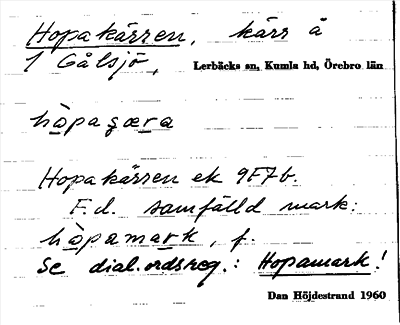 Hopakärren, kärr å
1 Gålsjö, Lerbäcks sn, Kumla hd, Örebro län
hòpaʂæra
Hopakärren ek 9F7b.
F.d. samfälld mark:
hòpamark, f.
Se dial.ordsreg.: Hopamark!
Dan Höjdestrand 1960